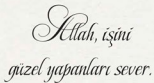 Allah, işini
güzel yapanları sever.